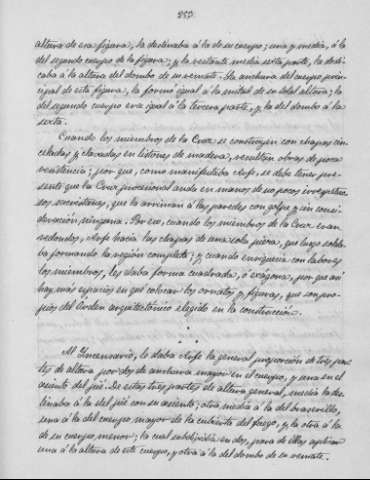 altura de esa figura, la destinaba á la de su cuerpo; una y media, á la
del segundo cuerpo de la figura; y la restante media sexta parte, la dedi-
caba á la altura del dombo de su remate. La anchura del cuerpo prin-
cipal de esta figura, la formó igual á la mitad de su total altura; la
del segundo cuerpo era igual á la tercera parte, y la del dombo á la
sexta.
Cuando los miembros de la Cruz se construyen con chapas cin-
celadas y clavadas en listones de madera, resultan obras de poca
resistencia; por que, como manifestaba Arfe, se debe tener pre-
sente que la Cruz procesional anda en manos de no pocos irrespetuo-
sos sacristanes, que la arriman á las paredes con golpe y sin consi-
deración ninguna. Por eso, cuando los miembros de la Cruz eran
redondos, Arfe hacía las chapas de una sola pieza, que luego solda-
ba formando la región completa; y cuando enriquecía con labores
los miembros, les daba forma cuadrada, ó exágona, por que así
hay más espacios en que colocar los ornatos y figuras, que son pro-
pios del Orden arquitectónico elegido en la construcción.
Al Incensario, le daba Arfe la general proporción de tres par-
tes de altura por dos de anchura mayor en el cuerpo, y una en el
asiento del pié. De estas tres partes de altura general, media la des-
tinaba á la del pié con su asiento; otra media á la del braserillo,
una á la del cuerpo mayor de la cubierta del fuego, y la otra á la
de su cuerpo menor; la cual subdividía en dos, para de ellas aplicar
una á la altura de este cuerpo, y otra á la del dombo de su remate.